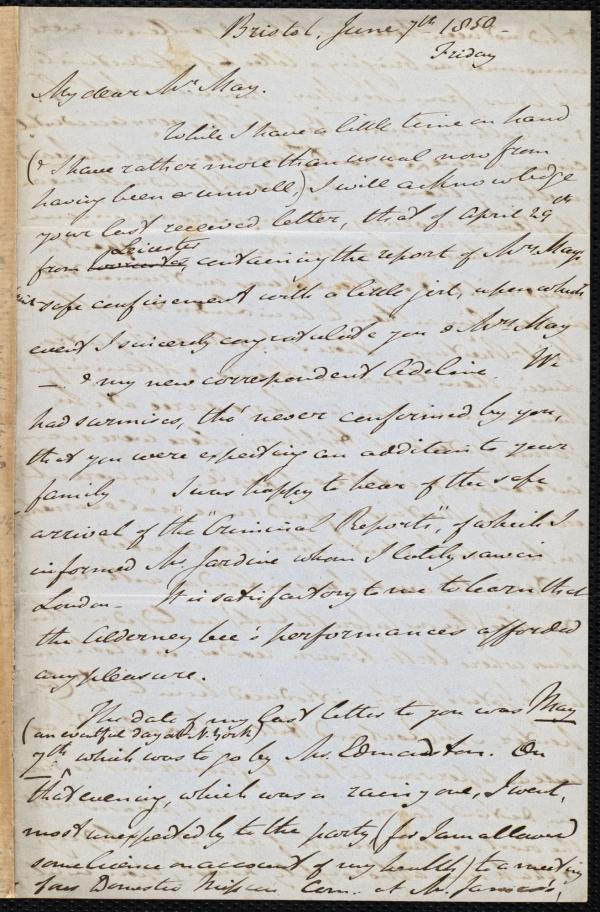 Bristol, June 7th 1850.
Friday
My dear Mr May.
While I have a little time on hand
(& I have rather more than usual now from
having been so unwell) I will acknowledge
your last received letter, that of April 29th
from Leicester, containing the report of Mrs May's
safe confinement with a little girl, upon which
event I sincerely congratulate you & Mrs May
— & my new correspondent Adeline. We
had surmises, tho' never confirmed by you,
that you were expecting an addition to your
family I was happy to hear of the safe
arrival of the "Criminal Reports", of which I
informed Mr. Jardine whom I lately saw in
London - It is satisfactory to me to learn that
the Alderney bee's performances afforded
any pleasure.
The date of my last letter to you was May
(an eventful day at N. York)
7th which was to go by Mr. Edmundston. On
that evening, which was a rainy one, I went,
most unexpectedly to the party (for I am allowed
some license on account of my health) to a meeting
Domestic Mission Com. at Mr. James's,